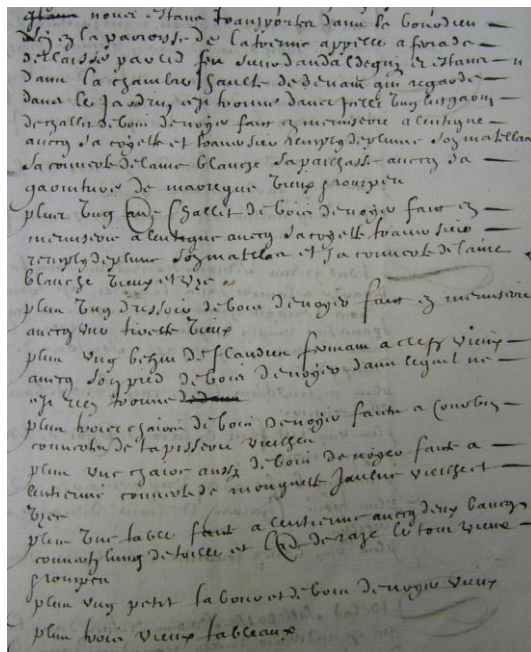 nous estans transportés dans le bourdieu
scis en la paroisse de laterne appellé a ferade
dellaissé par led feu sieur dandaldeguy et estans
dans la chambre haulte de devant qui regarde
dans le jardrin y a trouvé dans icelle ung
de challit de bois de noyer faict en menuserie a lentique
avecq sa coytte et traversier remply de plume son matellas
sa couverte de laine blanche sa paillasse avecq sa
garniture de vieux
plus ung autre challit de bois de noyer faict en
menuserie a lentique avecq sa coytte traversier
remply de plume son matellas et sa couverte de laine
blanche vieux et uzé
plus ung dressoir de bois de noyer faict en menuserie
avecq une vieux
plus ung de flandres fermant a cleff vieux
avecq son pied de bois de noyer dans lequel ne
sy est rien trouvé
plus trois chaires de bois de noyer faictes a
couvertes de tapisserie vieilhes
plus une chaire aussy de bois de noyer faicte a
lentienne couverte de jaulne vieilhe et
uzee
plus une table faict a lentienne avecq deux bancqs
couvertz lung de toille et de raze le tout vieux
plus ung petit tabouret de bois de noyer vieux
plus trois vieux tableaux